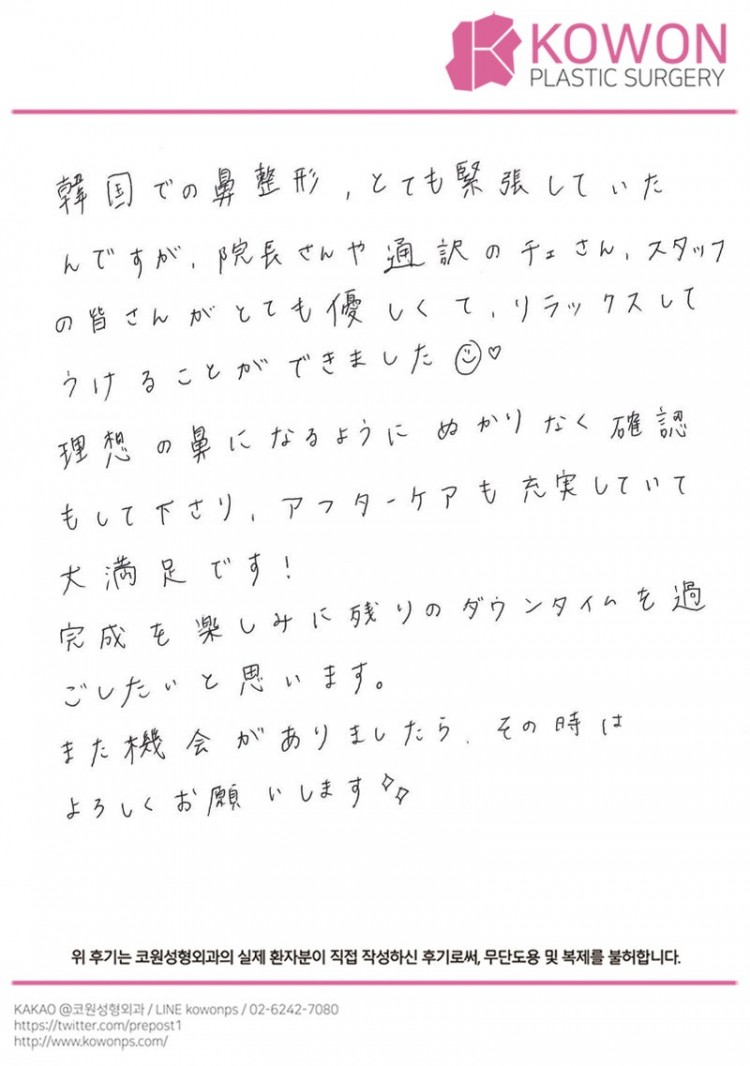 KOWON
PLASTIC SURGERY
韓国での鼻整形,とても緊張していた
んですが,院長さんや通訳のチェさん,スタッフ
の皆さんがとても優しくて,リラックスして
うけることができました☺♡
理想の鼻になるように ぬかりなく確認
もして下さり,アフターケアも充実していて
大満足です!
完成を楽しみに残りのダウンタイムを過
ごしたいと思います。
また機会がありましたら、その時は
よろしくお願いします✧✧
위 후기는 코원성형외과의 실제 환자분이 직접 작성하신 후기로써, 무단도용 및 복제를 불허합니다.
KAKAO @코원성형외과 / LINE kowonps / 02-6242-7080
https://twitter.com/prepost1
http://www.kowonps.com/